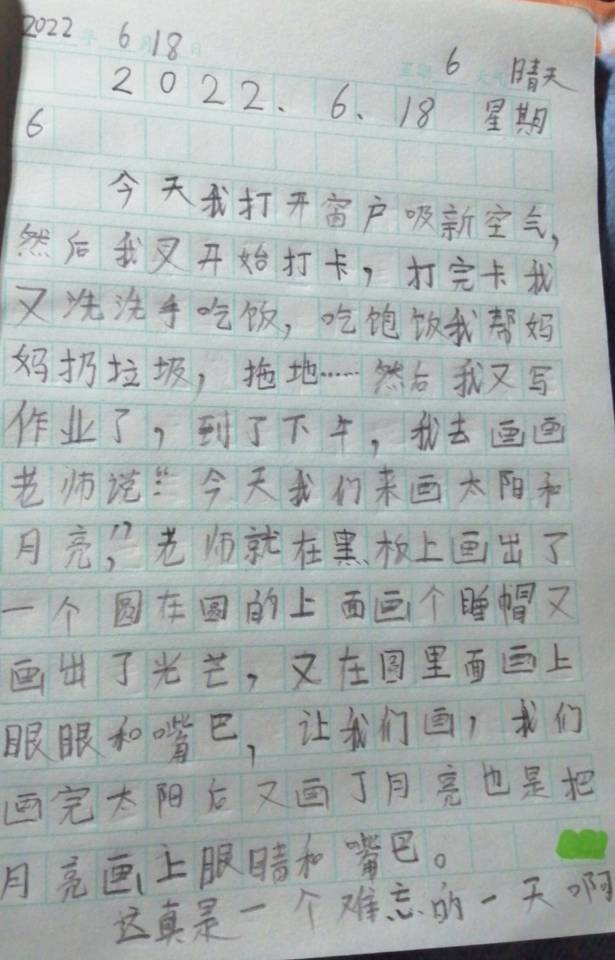 2022年 6月18日 星期 6 天气 晴天
2022.6.18 星期
6
今天我打开窗户吸新空气,
然后我又开始打卡,打完卡我
又洗洗手吃饭,吃饱饭我帮妈
妈扔垃圾,拖地……然后我又写
作业了,到了下午,我去画画
老师说:“今天我们来画太阳和
月亮,”老师就在黑板上画出了
一个圆在圆的上面画个睡帽又
画出了光芒,又在圆里面画上
眼眼和嘴巴,让我们画,我们
画完太阳后又画了月亮也是把
月亮画上眼睛和嘴巴。
这真是一个难忘的一天啊